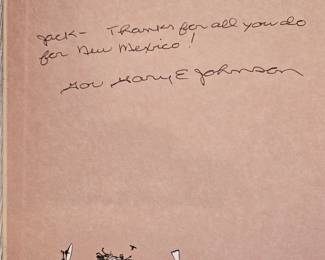 Jack- Thanks for all you do
for New Mexico!
Gov Gary E Johnson